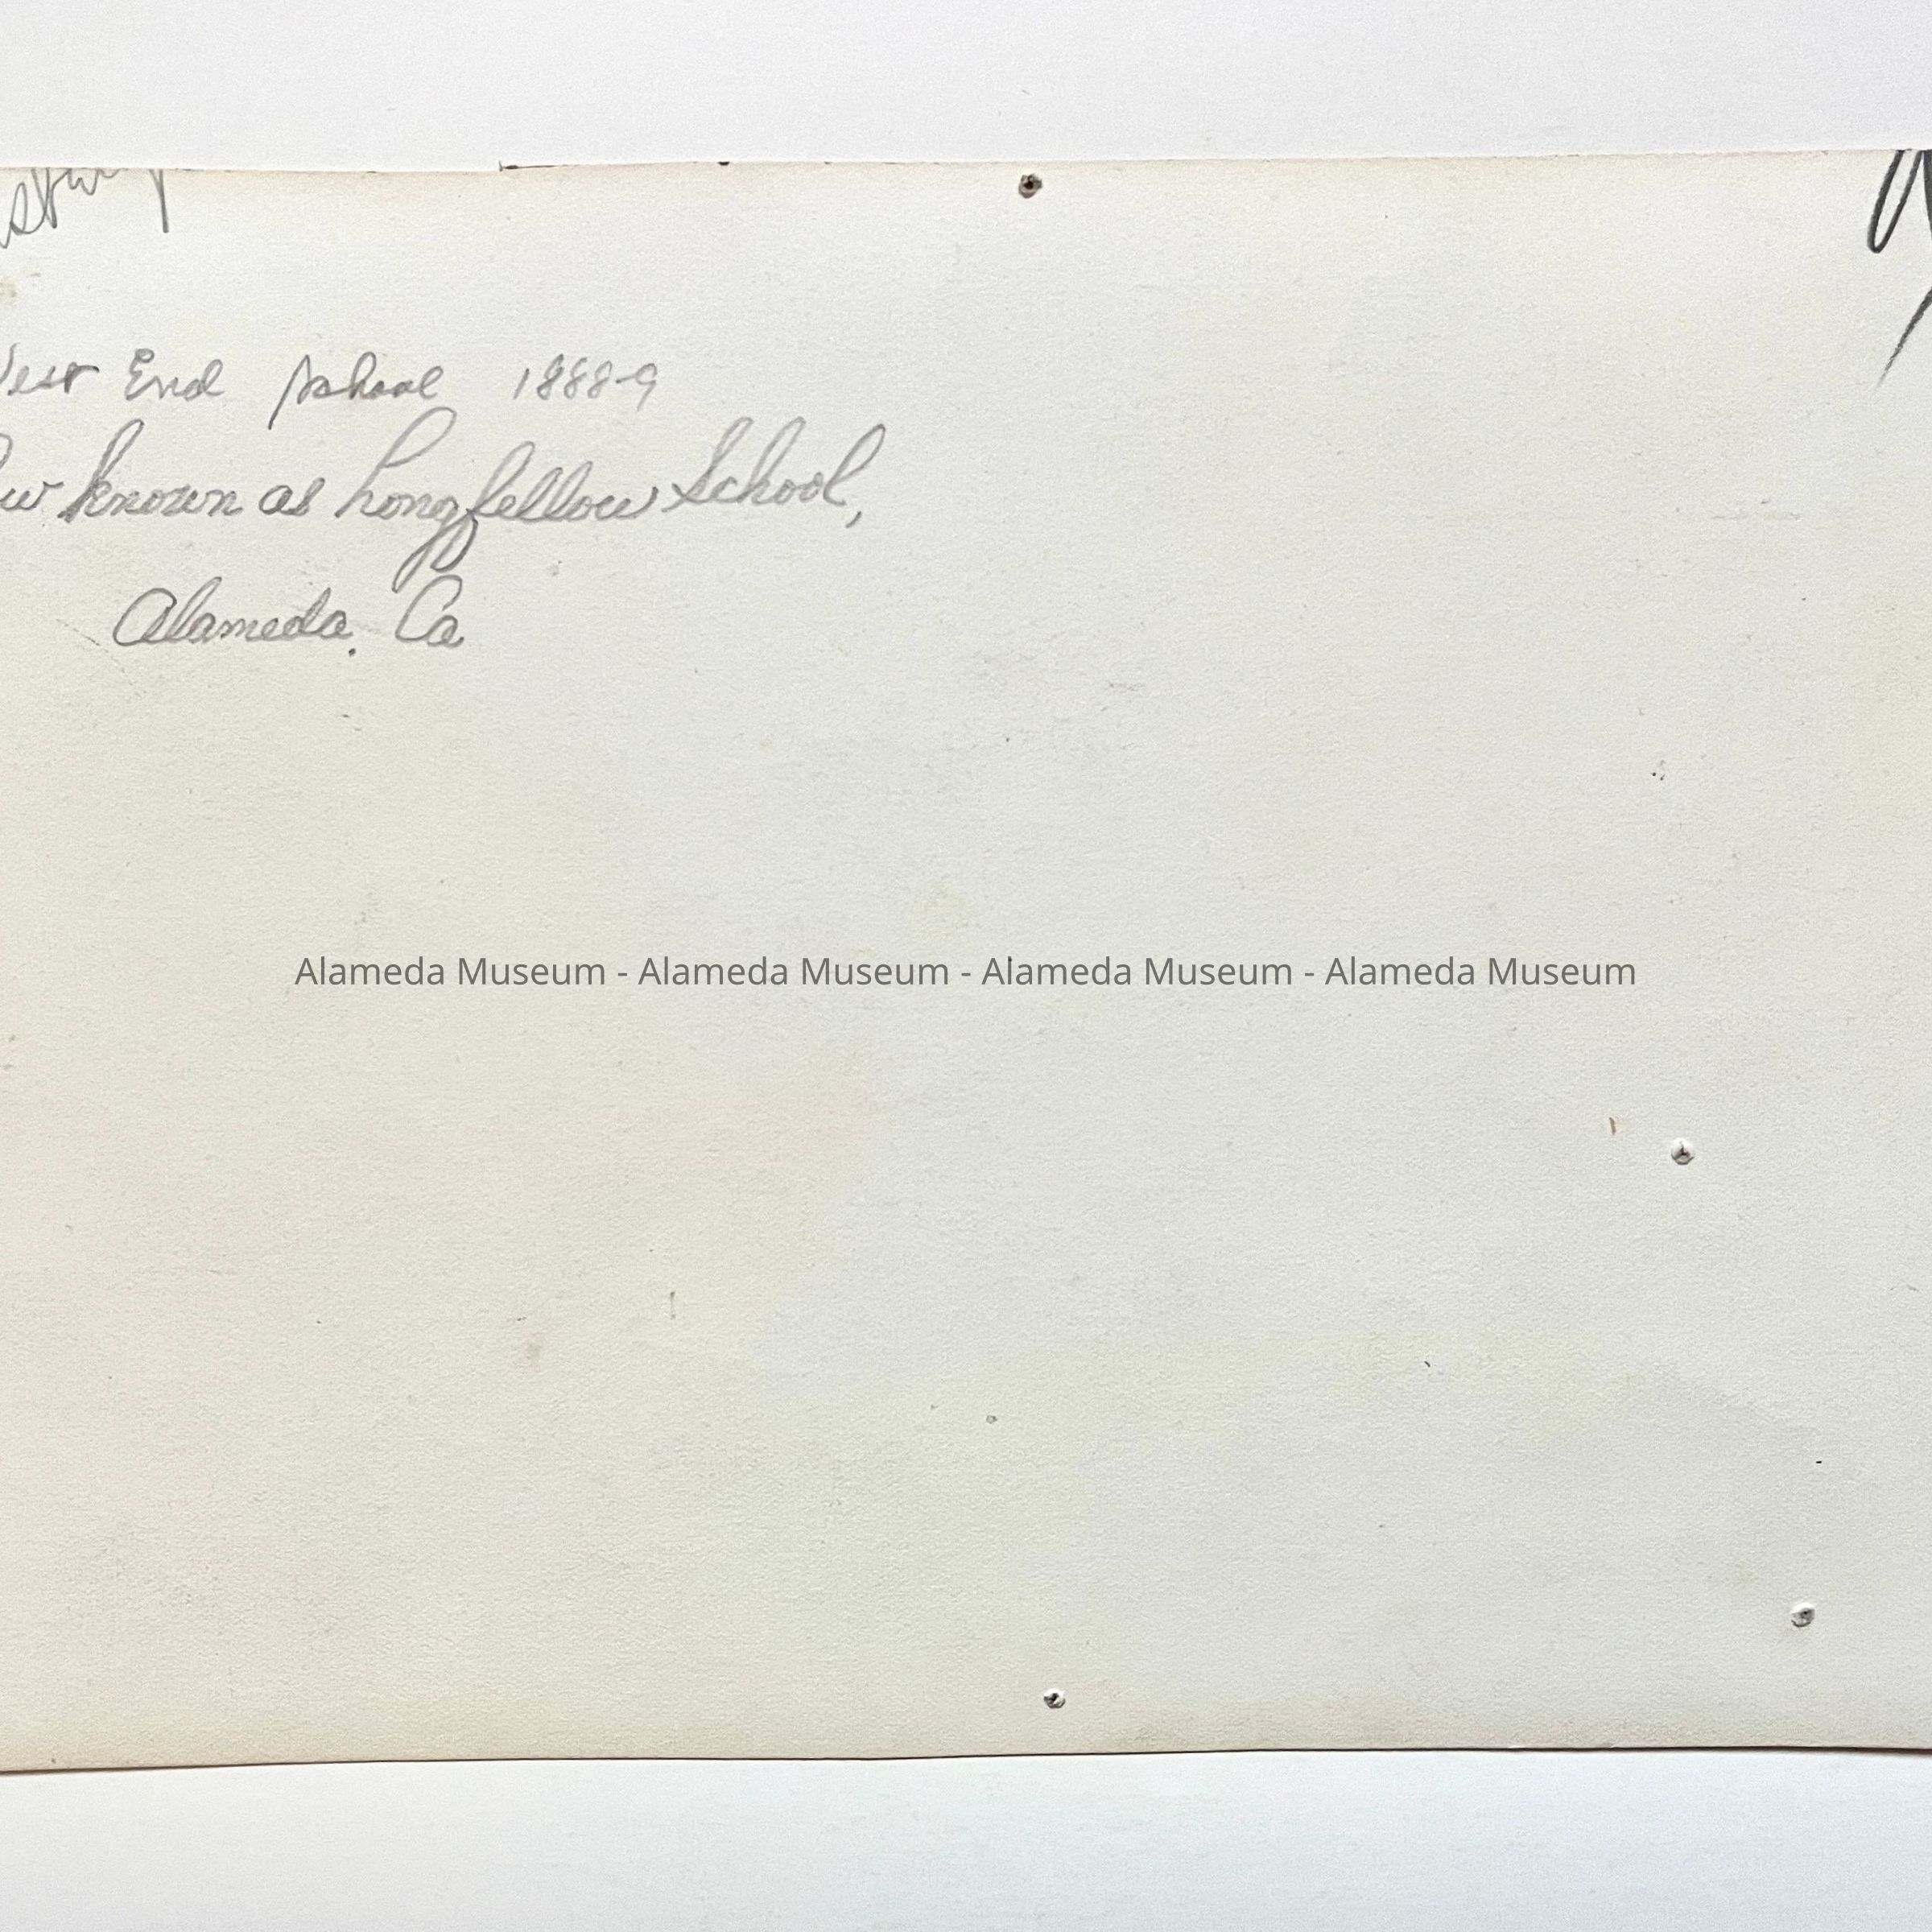 West End School 1888-9
known as Longfellow School,
Alameda. Ca
Alameda Museum - Alameda Museum - Alameda Museum - Alameda Museum